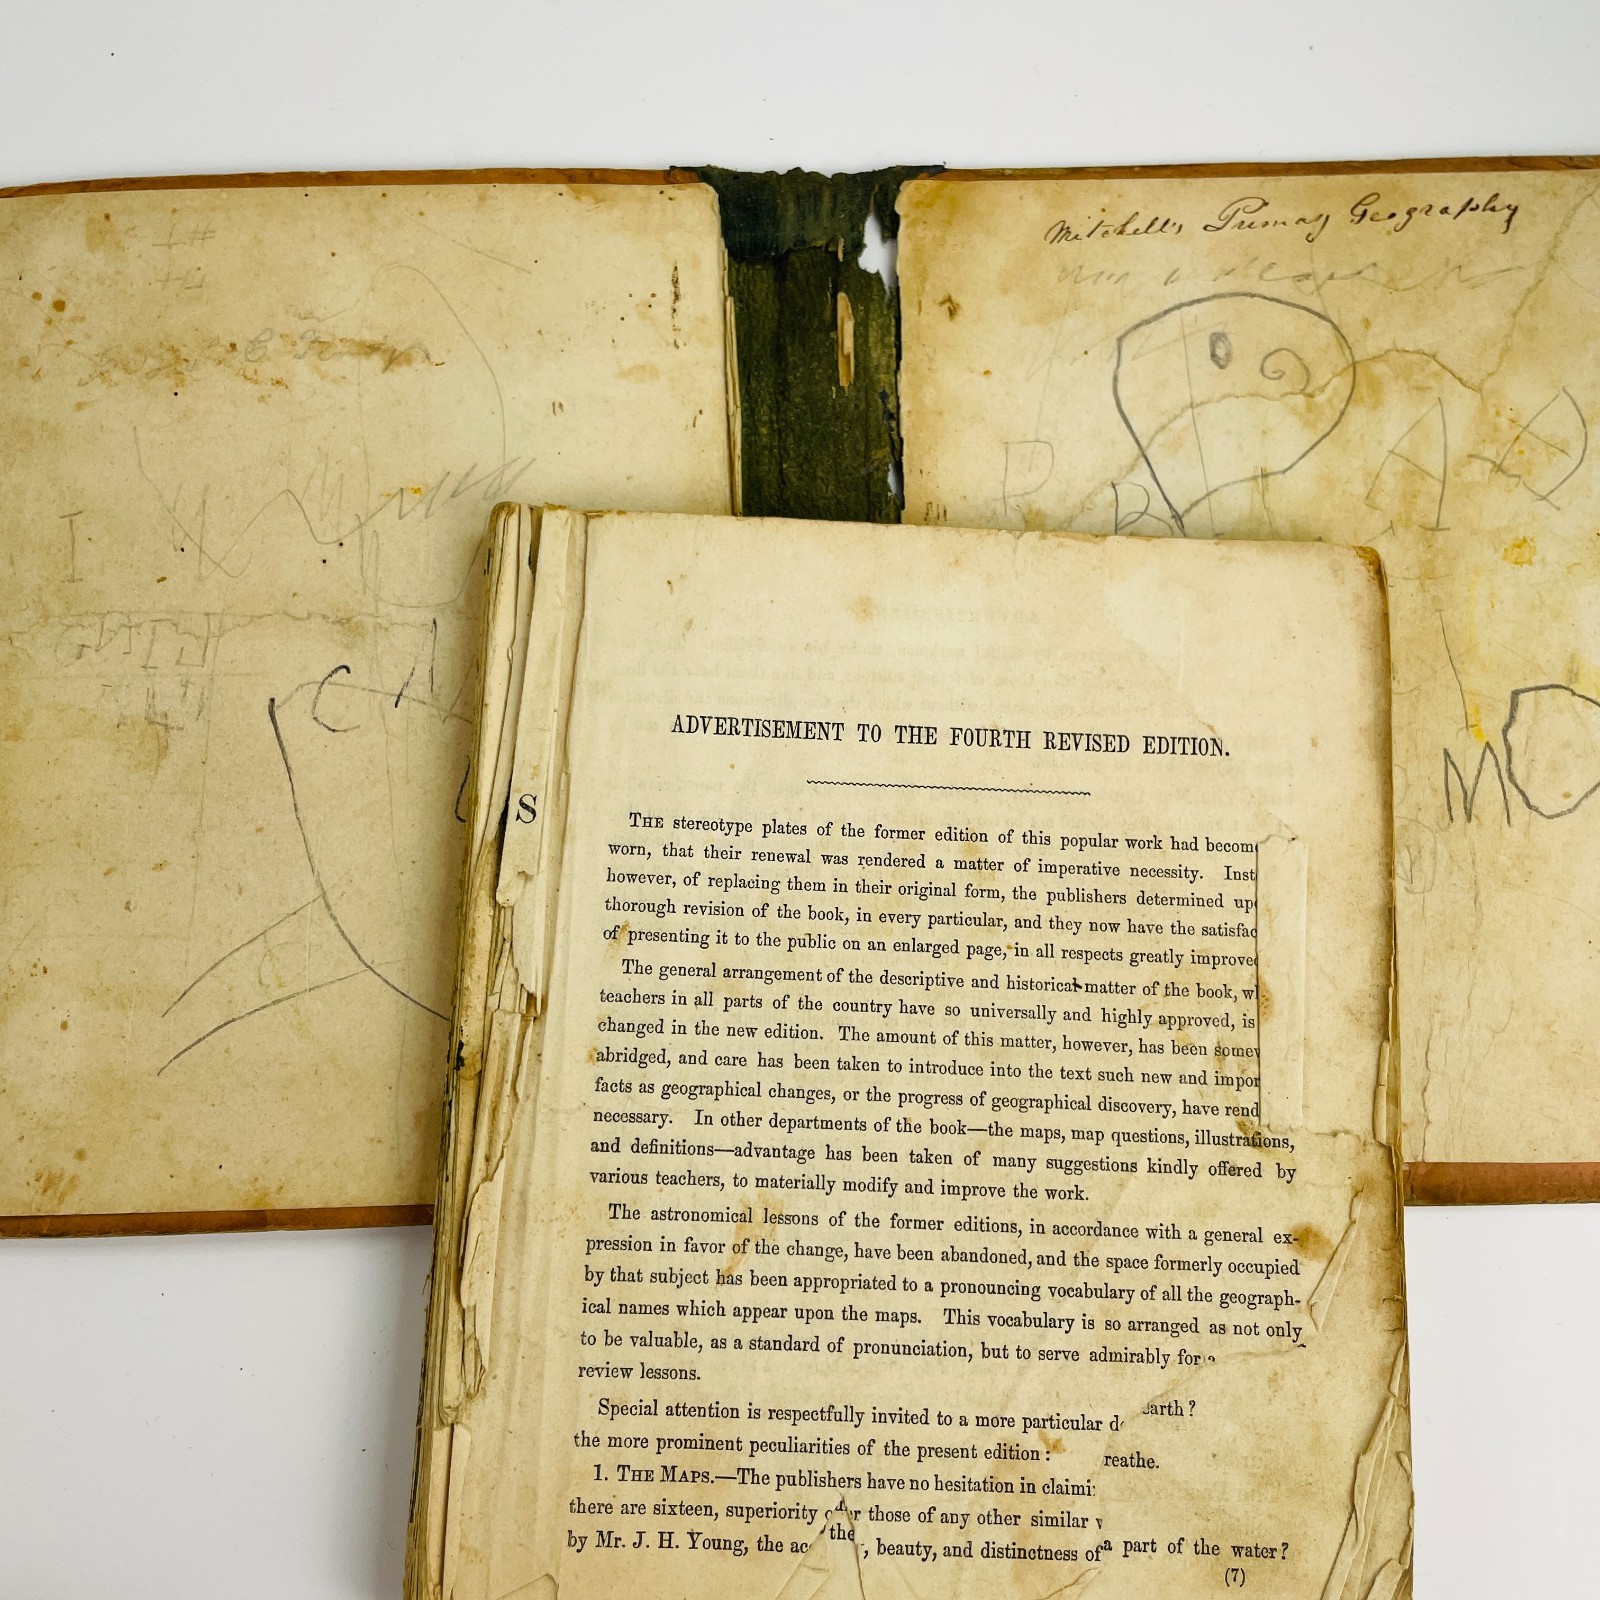 Mitchell's Primary Geography
I
C A
MO
S
ADVERTISEMENT TO THE FOURTH REVISED EDITION.
THE stereotype plates of the former edition of this popular work had becom
worn, that their renewal was rendered a matter of imperative necessity. Inst
however, of replacing them in their original form, the publishers determined up
thorough revision of the book, in every particular, and they now have the satisfac
of presenting it to the public on an enlarged page, in all respects greatly improve
The general arrangement of the descriptive and historical matter of the book, w
teachers in all parts of the country have so universally and highly approved, is
changed in the new edition. The amount of this matter, however, has been some
abridged, and care has been taken to introduce into the text such new and impor
facts as geographical changes, or the progress of geographical discovery, have rend
necessary. In other departments of the book—the maps, map questions, illustrations,
and definitions—advantage has been taken of many suggestions kindly offered by
various teachers, to materially modify and improve the work.
The astronomical lessons of the former editions, in accordance with a general ex-
pression in favor of the change, have been abandoned, and the space formerly occupied
by that subject has been appropriated to a pronouncing vocabulary of all the geograph-
ical names which appear upon the maps. This vocabulary is so arranged as not only
to be valuable, as a standard of pronunciation, but to serve admirably for
review lessons.
Special attention is respectfully invited to a more particular d arth?
the more prominent peculiarities of the present edition: reathe.
1. THE MAPS.—The publishers have no hesitation in claimi
there are sixteen, superiority those of any other similar
by Mr. J. H. Young, the ac the , beauty, and distinctness of a part of the water?
(7)